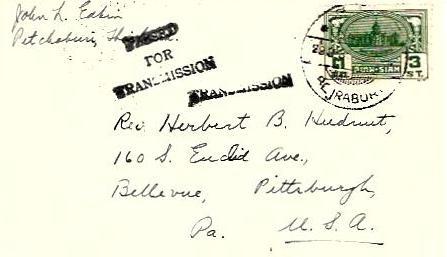 John L. Eakin
Petchaburi,
PASSED
FOR
TRANSMISSION
TRANSMISSION
SIAM-SIAM
3
ST.
Rev. Herbert B. Hudnut,
160 S. Euclid Ave.,
Bellevue, Pittsburgh,
Pa. U.S.A.